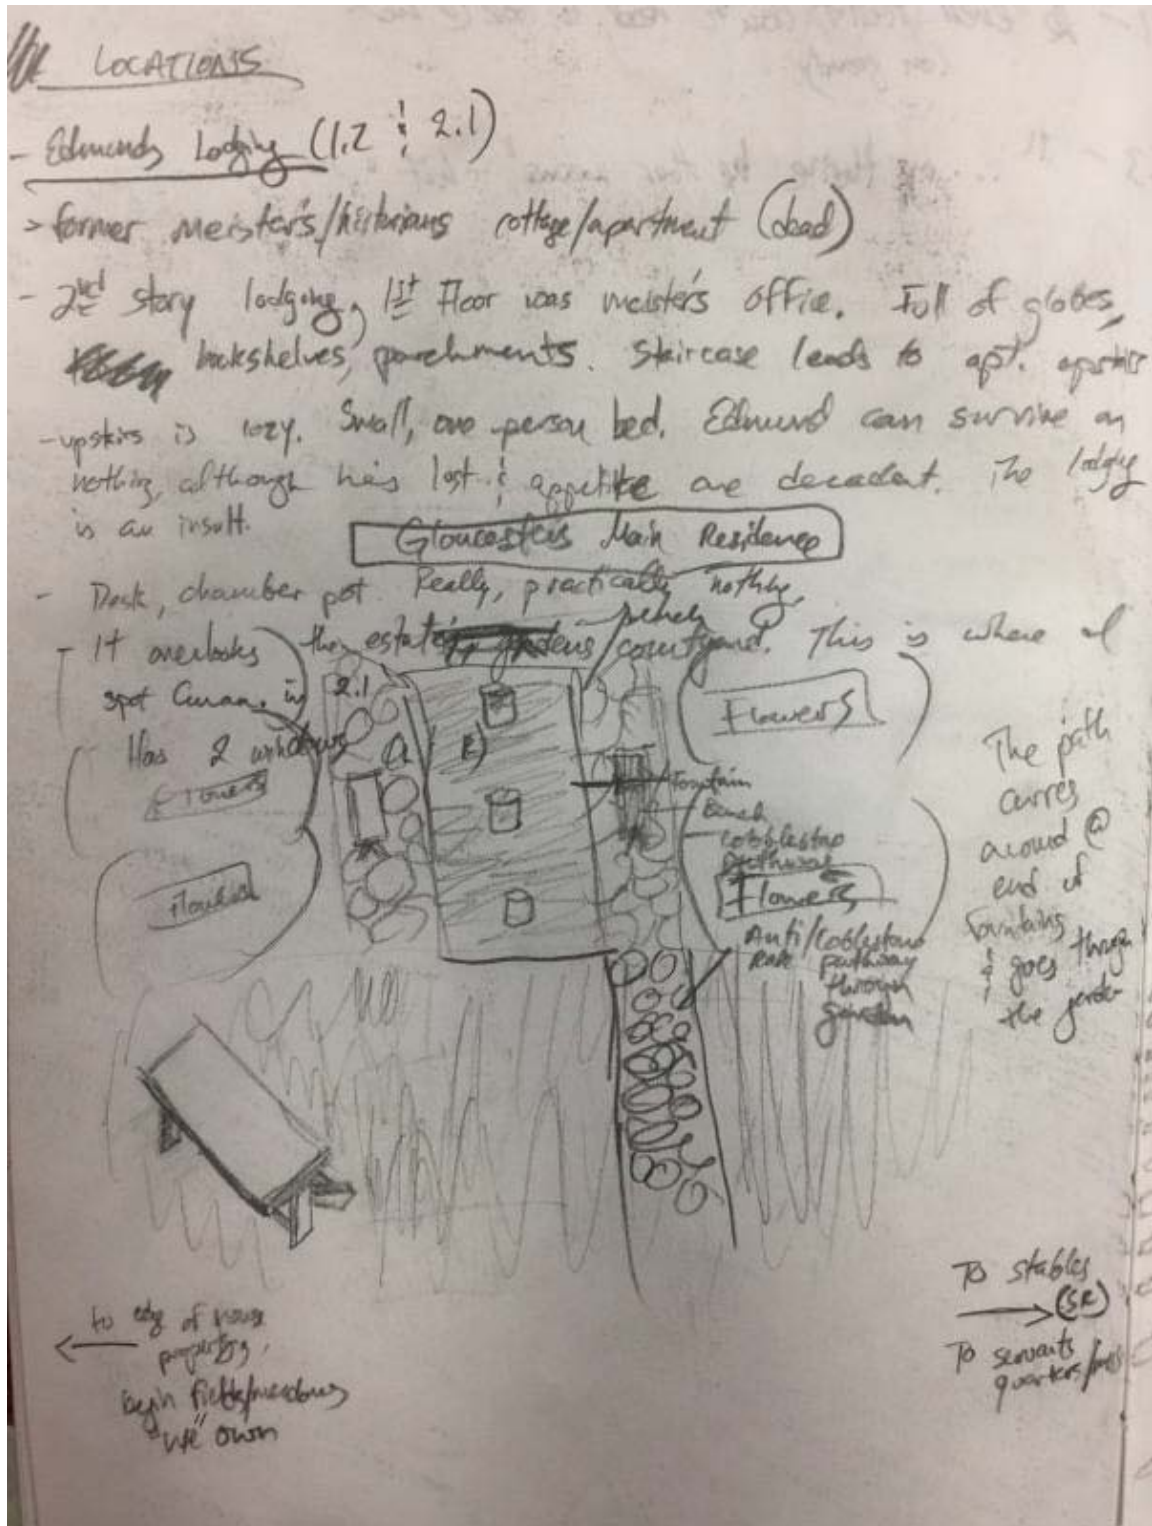 LOCATIONS
- Edmunds Lodging (1.2 & 2.1)
> former meister's/historians cottage/apartment (dead)
- 2nd story lodging, 1st Floor was meister's office. Full of globes,
bookshelves, parchments. Staircase leads to apt. upstairs
- upstairs is cozy. Small, one person bed. Edmund can survive on
nothing, although his lust & appetite are decadent. The lodging
is an insult.
Gloucester's Main Residence
- Desk, chamber pot. Really, practically nothing,
- It overlooks the estate's gardens/courtyard. This is where I
spot Curan. in 2.1
- Has 2 windows
Flowers
Flowers
Flowers
Fountain
Bench
Cobblestone
pathway
Flowers
/Coblestone
pathway
through
garden
The path
curves
around @
end of
fountains
& goes through
the garden
To stables
(SR)
To servants
quarters/
to edge of house
property,
begin fields/meadows
"we" own